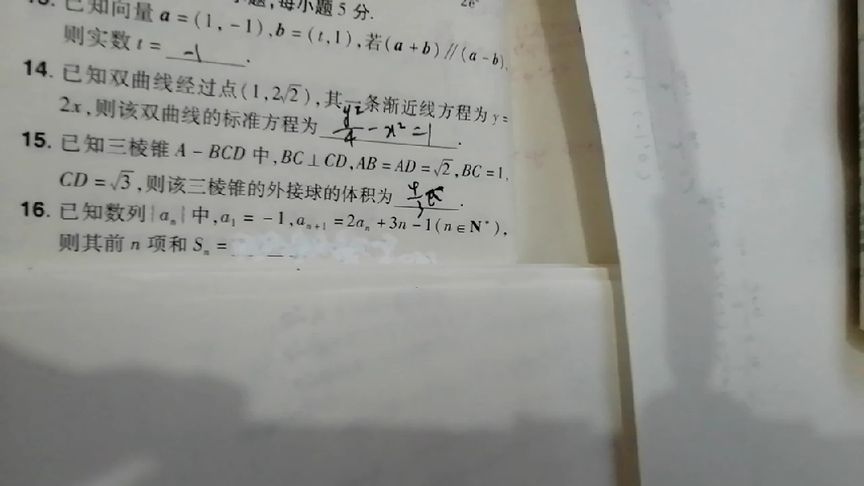 题,每小题5分.
已知向量a=(1,-1),b=(t,1),若(a+b)∥(a-b),
则实数t= -1 .
14.已知双曲线经过点(1,2√2),其一条渐近线方程为y=
2x,则该双曲线的标准方程为 y²/4-x²=1 .
15.已知三棱锥A-BCD中,BC⊥CD,AB=AD=√2,BC=1,
CD=√3,则该三棱锥的外接球的体积为 4/3π .
16.已知数列{aₙ}中,a₁=-1,aₙ₊₁=2aₙ+3n-1(n∈N*),
则其前n项和Sₙ=